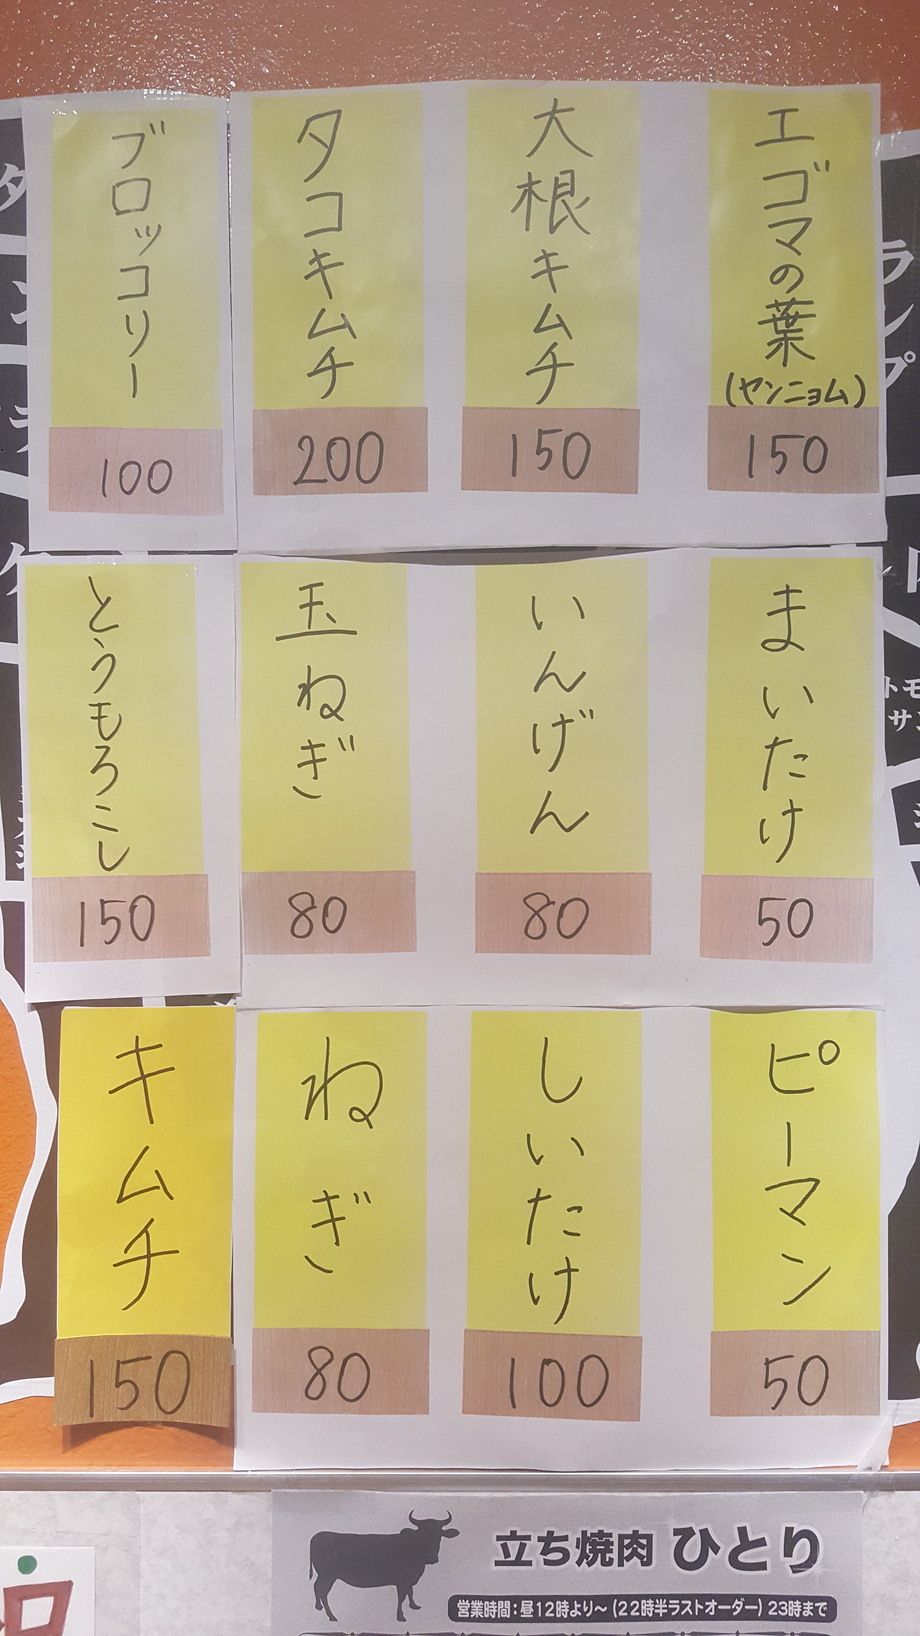 エゴマの葉
(ヤンニョム)
150
大根キムチ
150
タコキムチ
200
ブロッコリー
100
まいたけ
50
いんげん
80
玉ねぎ
80
とうもろこし
150
ピーマン
50
しいたけ
100
ねぎ
80
キムチ
150
立ち焼肉 ひとり
営業時間:昼12時より～(22時半ラストオーダー)23時まで